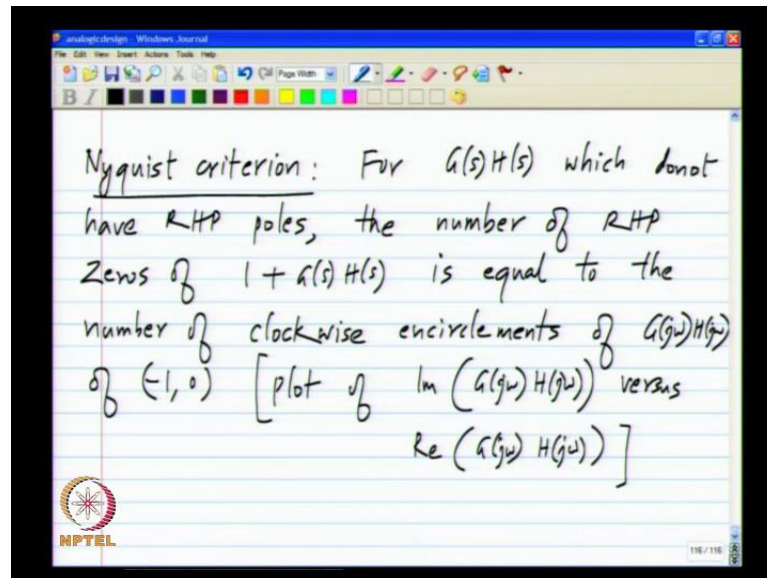 analogicdesign - Windows Journal
File Edit View Insert Actions Tools Help
Page Width
B I
Nyquist criterion: For G(s)H(s) which donot
have RHP poles, the number of RHP
Zeros of 1 + G(s) H(s) is equal to the
number of clockwise encirclements of G(jω)H(jω)
of (-1, 0) [plot of Im (G(jω) H(jω)) versus
Re (G(jω) H(jω))]
NPTEL
116 / 116